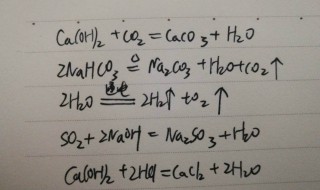 Ca(OH)₂ + CO₂ = CaCO₃ + H₂O
2NaHCO₃ ≜ Na₂CO₃ + H₂O + CO₂↑
2H₂O ══ 2H₂↑ + O₂↑
SO₂ + 2NaOH = Na₂SO₃ + H₂O
Ca(OH)₂ + 2HCl = CaCl₂ + 2H₂O